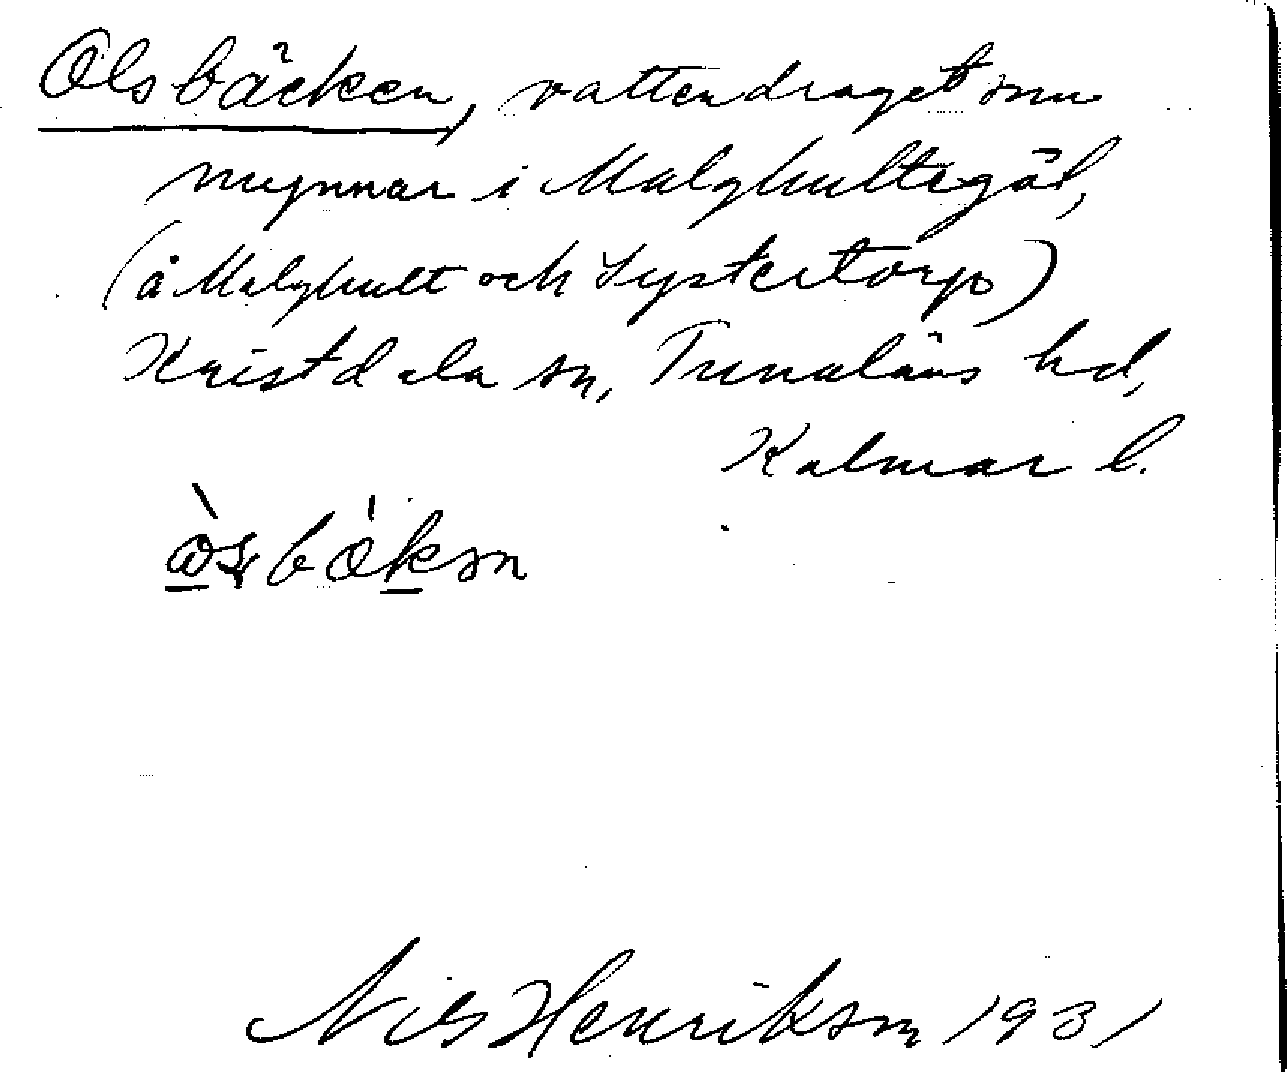 Olsbäcken, vattendraget som
mynnar i Malghultegöl,
(å Malghult och Systertorp)
Kristdala sn, Tunaläns hd,
Kalmar l.
Nils Henrikson 1931